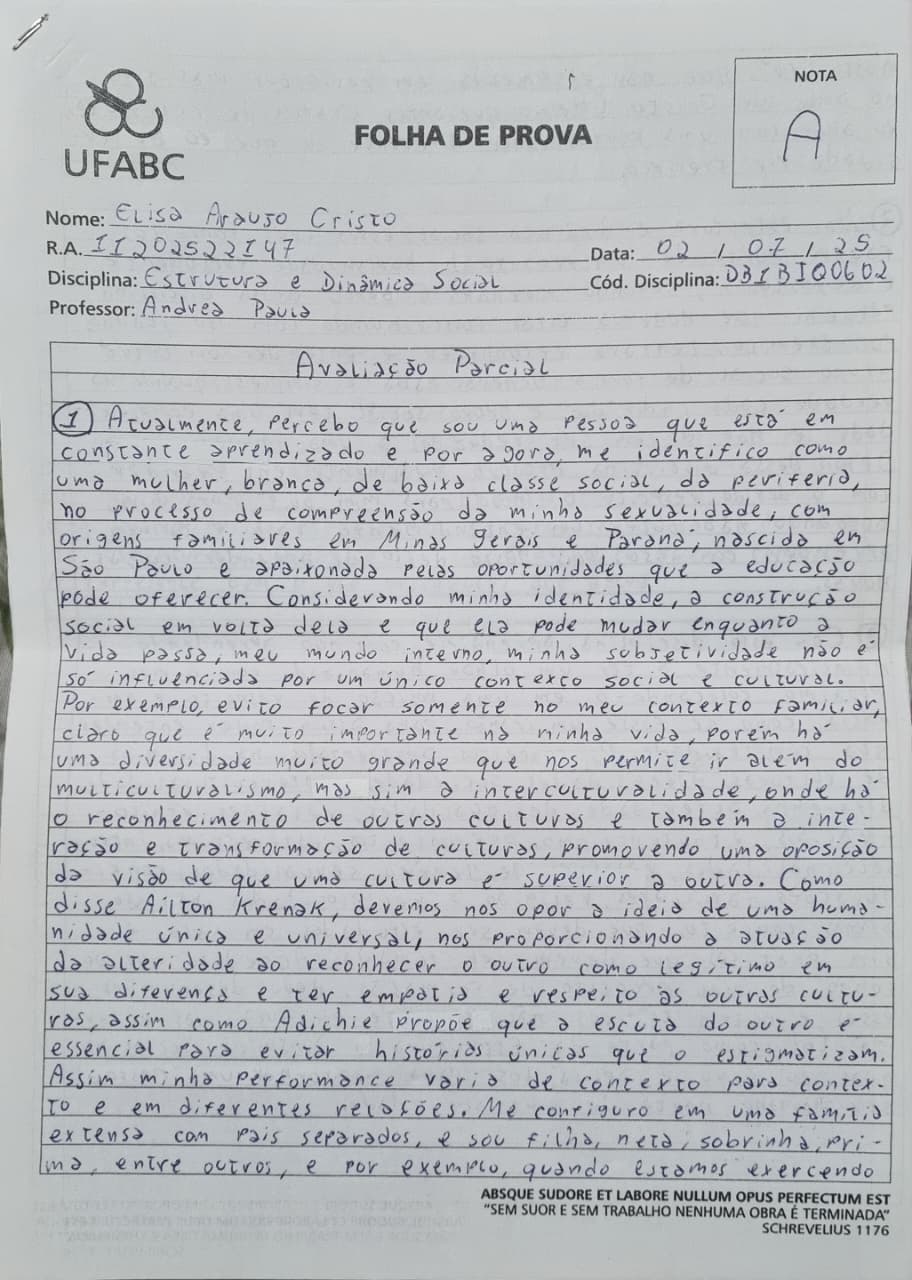 UFABC
FOLHA DE PROVA
NOTA
A
Nome: Elisa Araujo Cristo
R.A. 11202522147
Data: 02 / 07 / 25
Disciplina: Estrutura e Dinâmica Social
Cód. Disciplina: DB1BIQ0602
Professor: Andrea Paula
Avaliação Parcial
1 Atualmente, percebo que sou uma pessoa que está em
constante aprendizado e por agora, me identifico como
uma mulher, branca, de baixa classe social, da periferia,
no processo de compreensão da minha sexualidade, com
origens familiares em Minas Gerais e Paraná, nascida em
São Paulo e apaixonada pelas oportunidades que a educação
pode oferecer. Considerando minha identidade, a construção
social em volta dela e que ela pode mudar enquanto a
vida passa, meu mundo interno, minha subjetividade não é
só influenciada por um único contexto social e cultural.
Por exemplo, evito focar somente no meu contexto familiar,
claro que é muito importante na minha vida, porém há
uma diversidade muito grande que nos permite ir além do
multiculturalismo, mas sim a interculturalidade, onde há
o reconhecimento de outras culturas e também a inte-
ração e transformação de culturas, promovendo uma oposição
da visão de que uma cultura é superior a outra. Como
disse Ailton Krenak, devemos nos opor a ideia de uma huma-
nidade única e universal, nos proporcionando a atuação
da alteridade ao reconhecer o outro como legítimo em
sua diferença e ter empatia e respeito as outras cultu-
ras, assim como Adichie propõe que a escuta do outro é
essencial para evitar histórias únicas que o estigmatizam.
Assim minha performance varia de contexto para contex-
to e em diferentes relações. Me configuro em uma família
extensa com pais separados, e sou filha, neta, sobrinha, pri-
ma, entre outros, e por exemplo, quando estamos exercendo
ABSQUE SUDORE ET LABORE NULLUM OPUS PERFECTUM EST
"SEM SUOR E SEM TRABALHO NENHUMA OBRA É TERMINADA"
SCHREVELIUS 1176